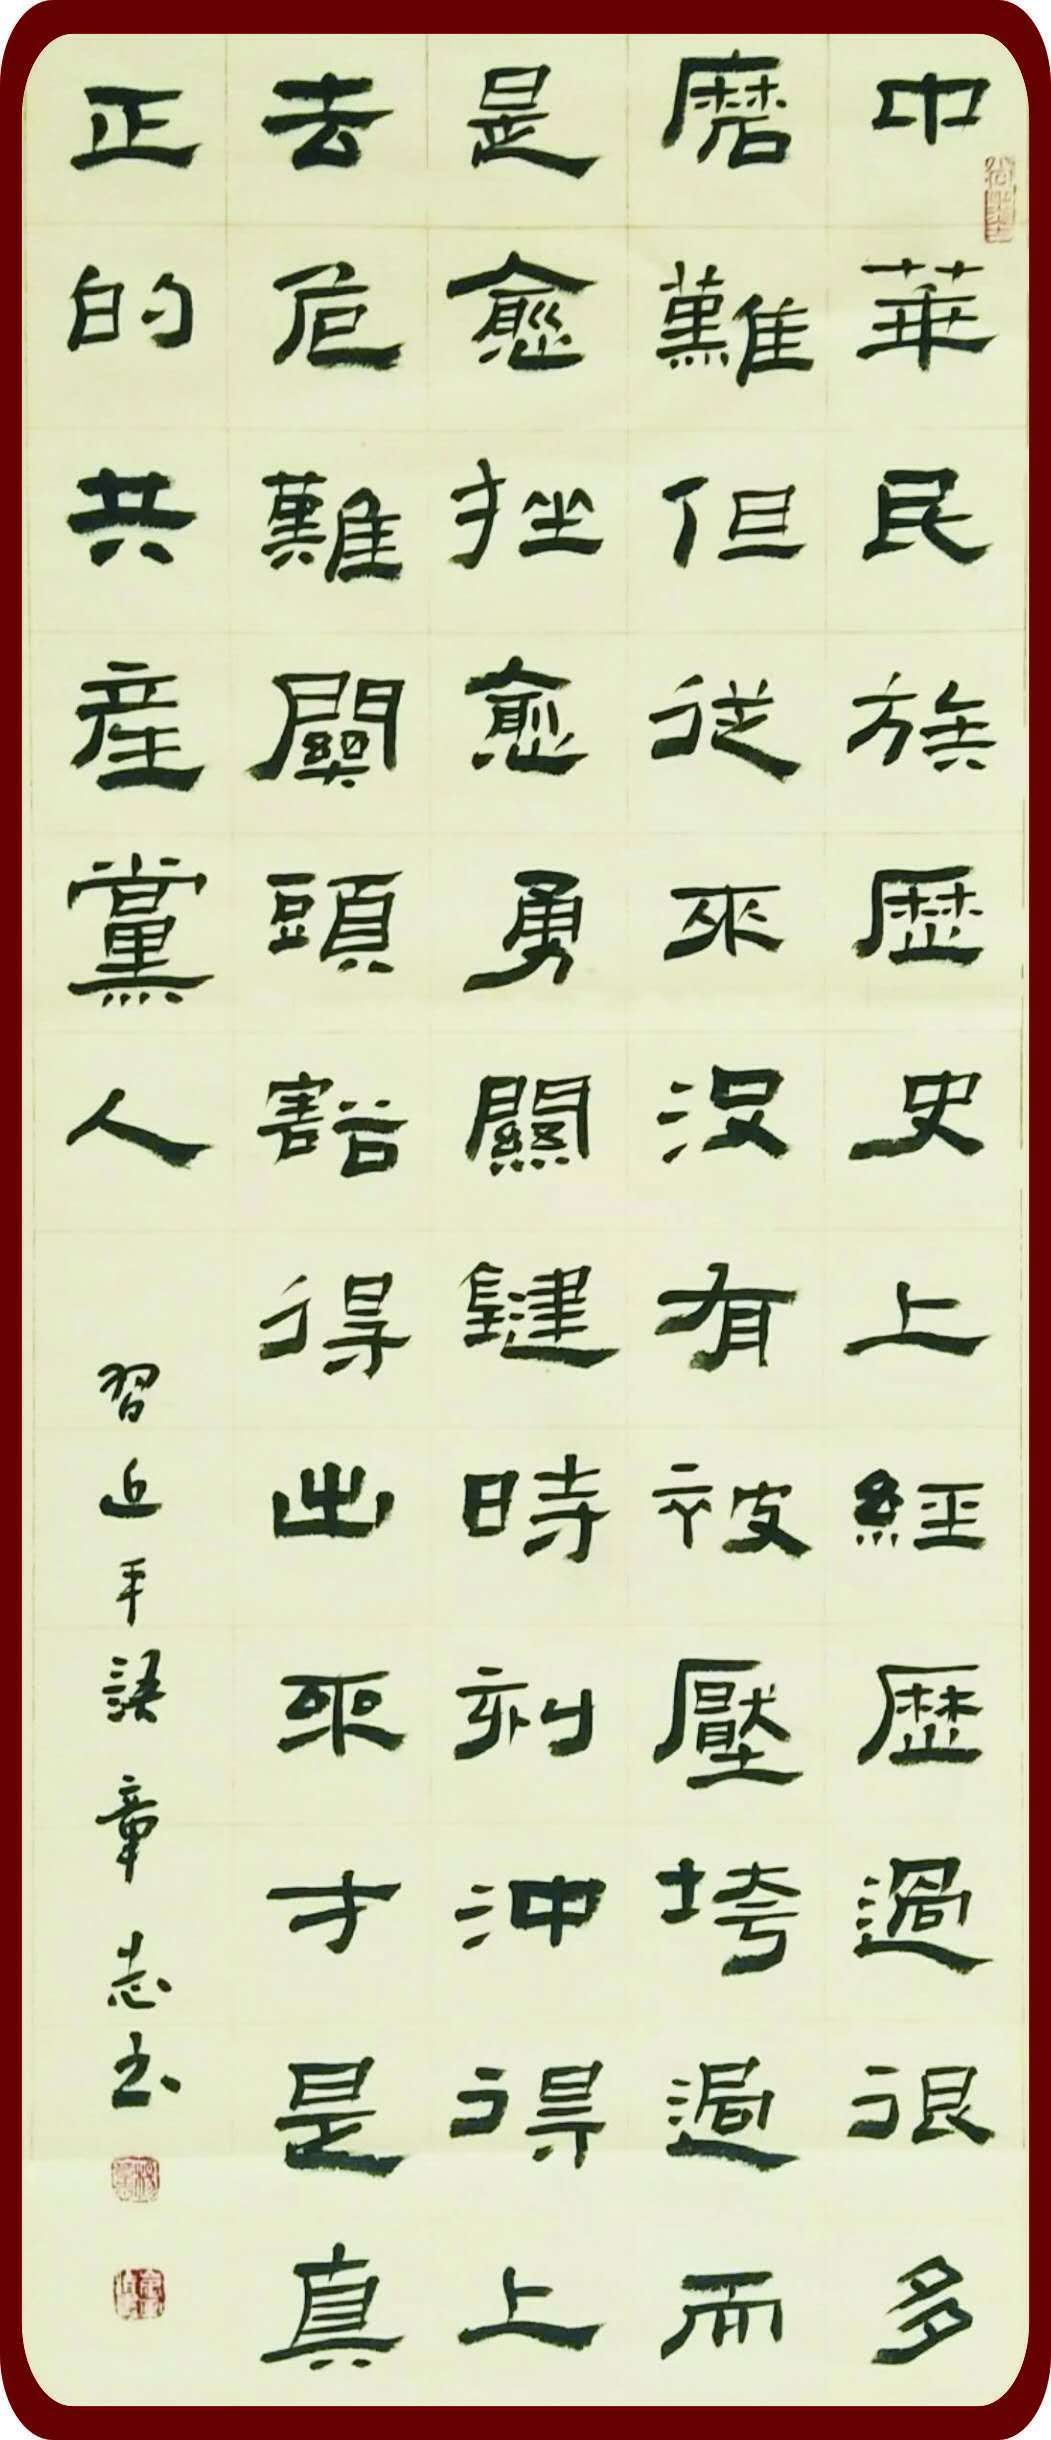 中華民族歷史上經歷過很多
磨難但從來沒有被壓垮過而
是愈挫愈勇關鍵時刻沖得上
去危難關頭豁得出來才是真
正的共產黨人
習近平語 章志书